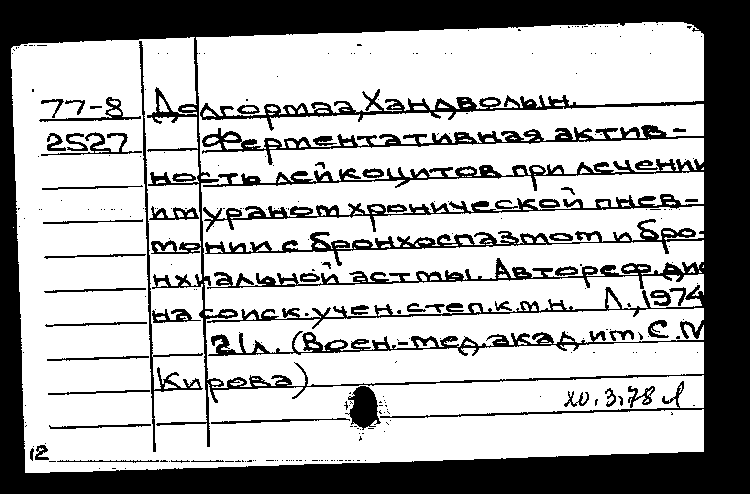 77-8 Долгормаа, Хандволын.
2527 Ферментативная актив-
ность лейкоцитов при лечении
имураном хронической пнев-
монии с бронхоспазмом и бро-
нхиальной астмы. Автореф. дис
на соиск. учен. степ. к.м.н. Л., 1974
21л. (Воен.-мед. акад. им. С.М
Кирова)
12